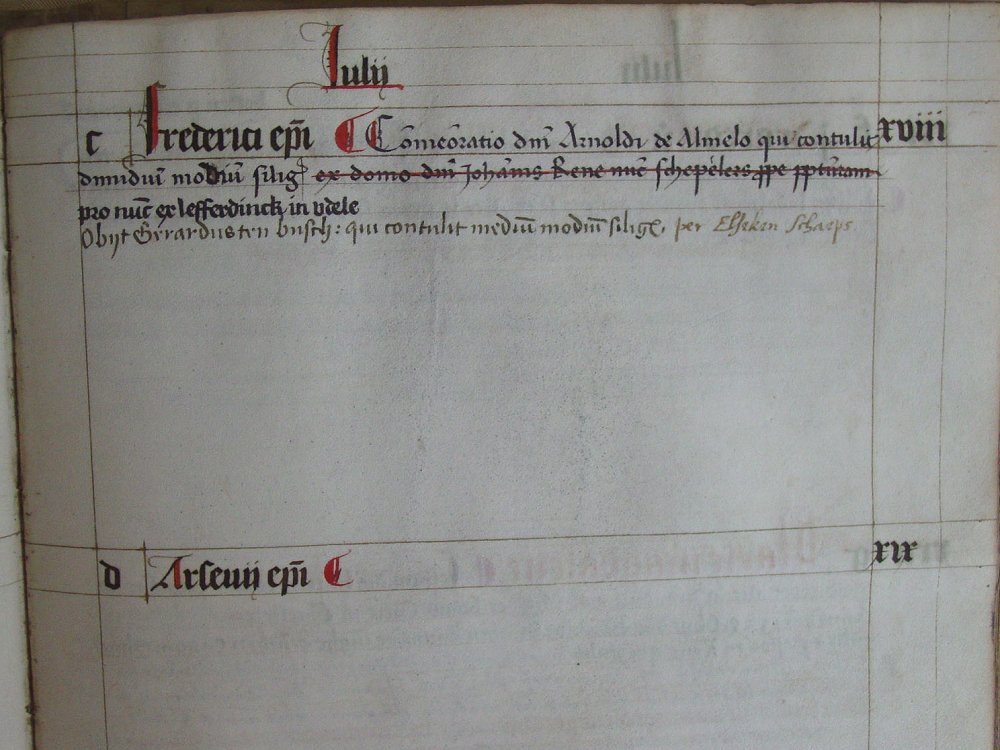 Iulij
c Frederici ep̄i Cōmeōratio dn̄i Arnoldi de Almelo qui contulit xviii
dimidiū modiū siliḡ ex domo dn̄i Johān̄is Kene nūc schepelers ꝓpe
pro nūc ex lefferdinck in vdele
Obijt Gerardus ten busch: qui contulit mediū modiū siliḡ, per Elseken Schaeps
d Arsenij ep̄i xix